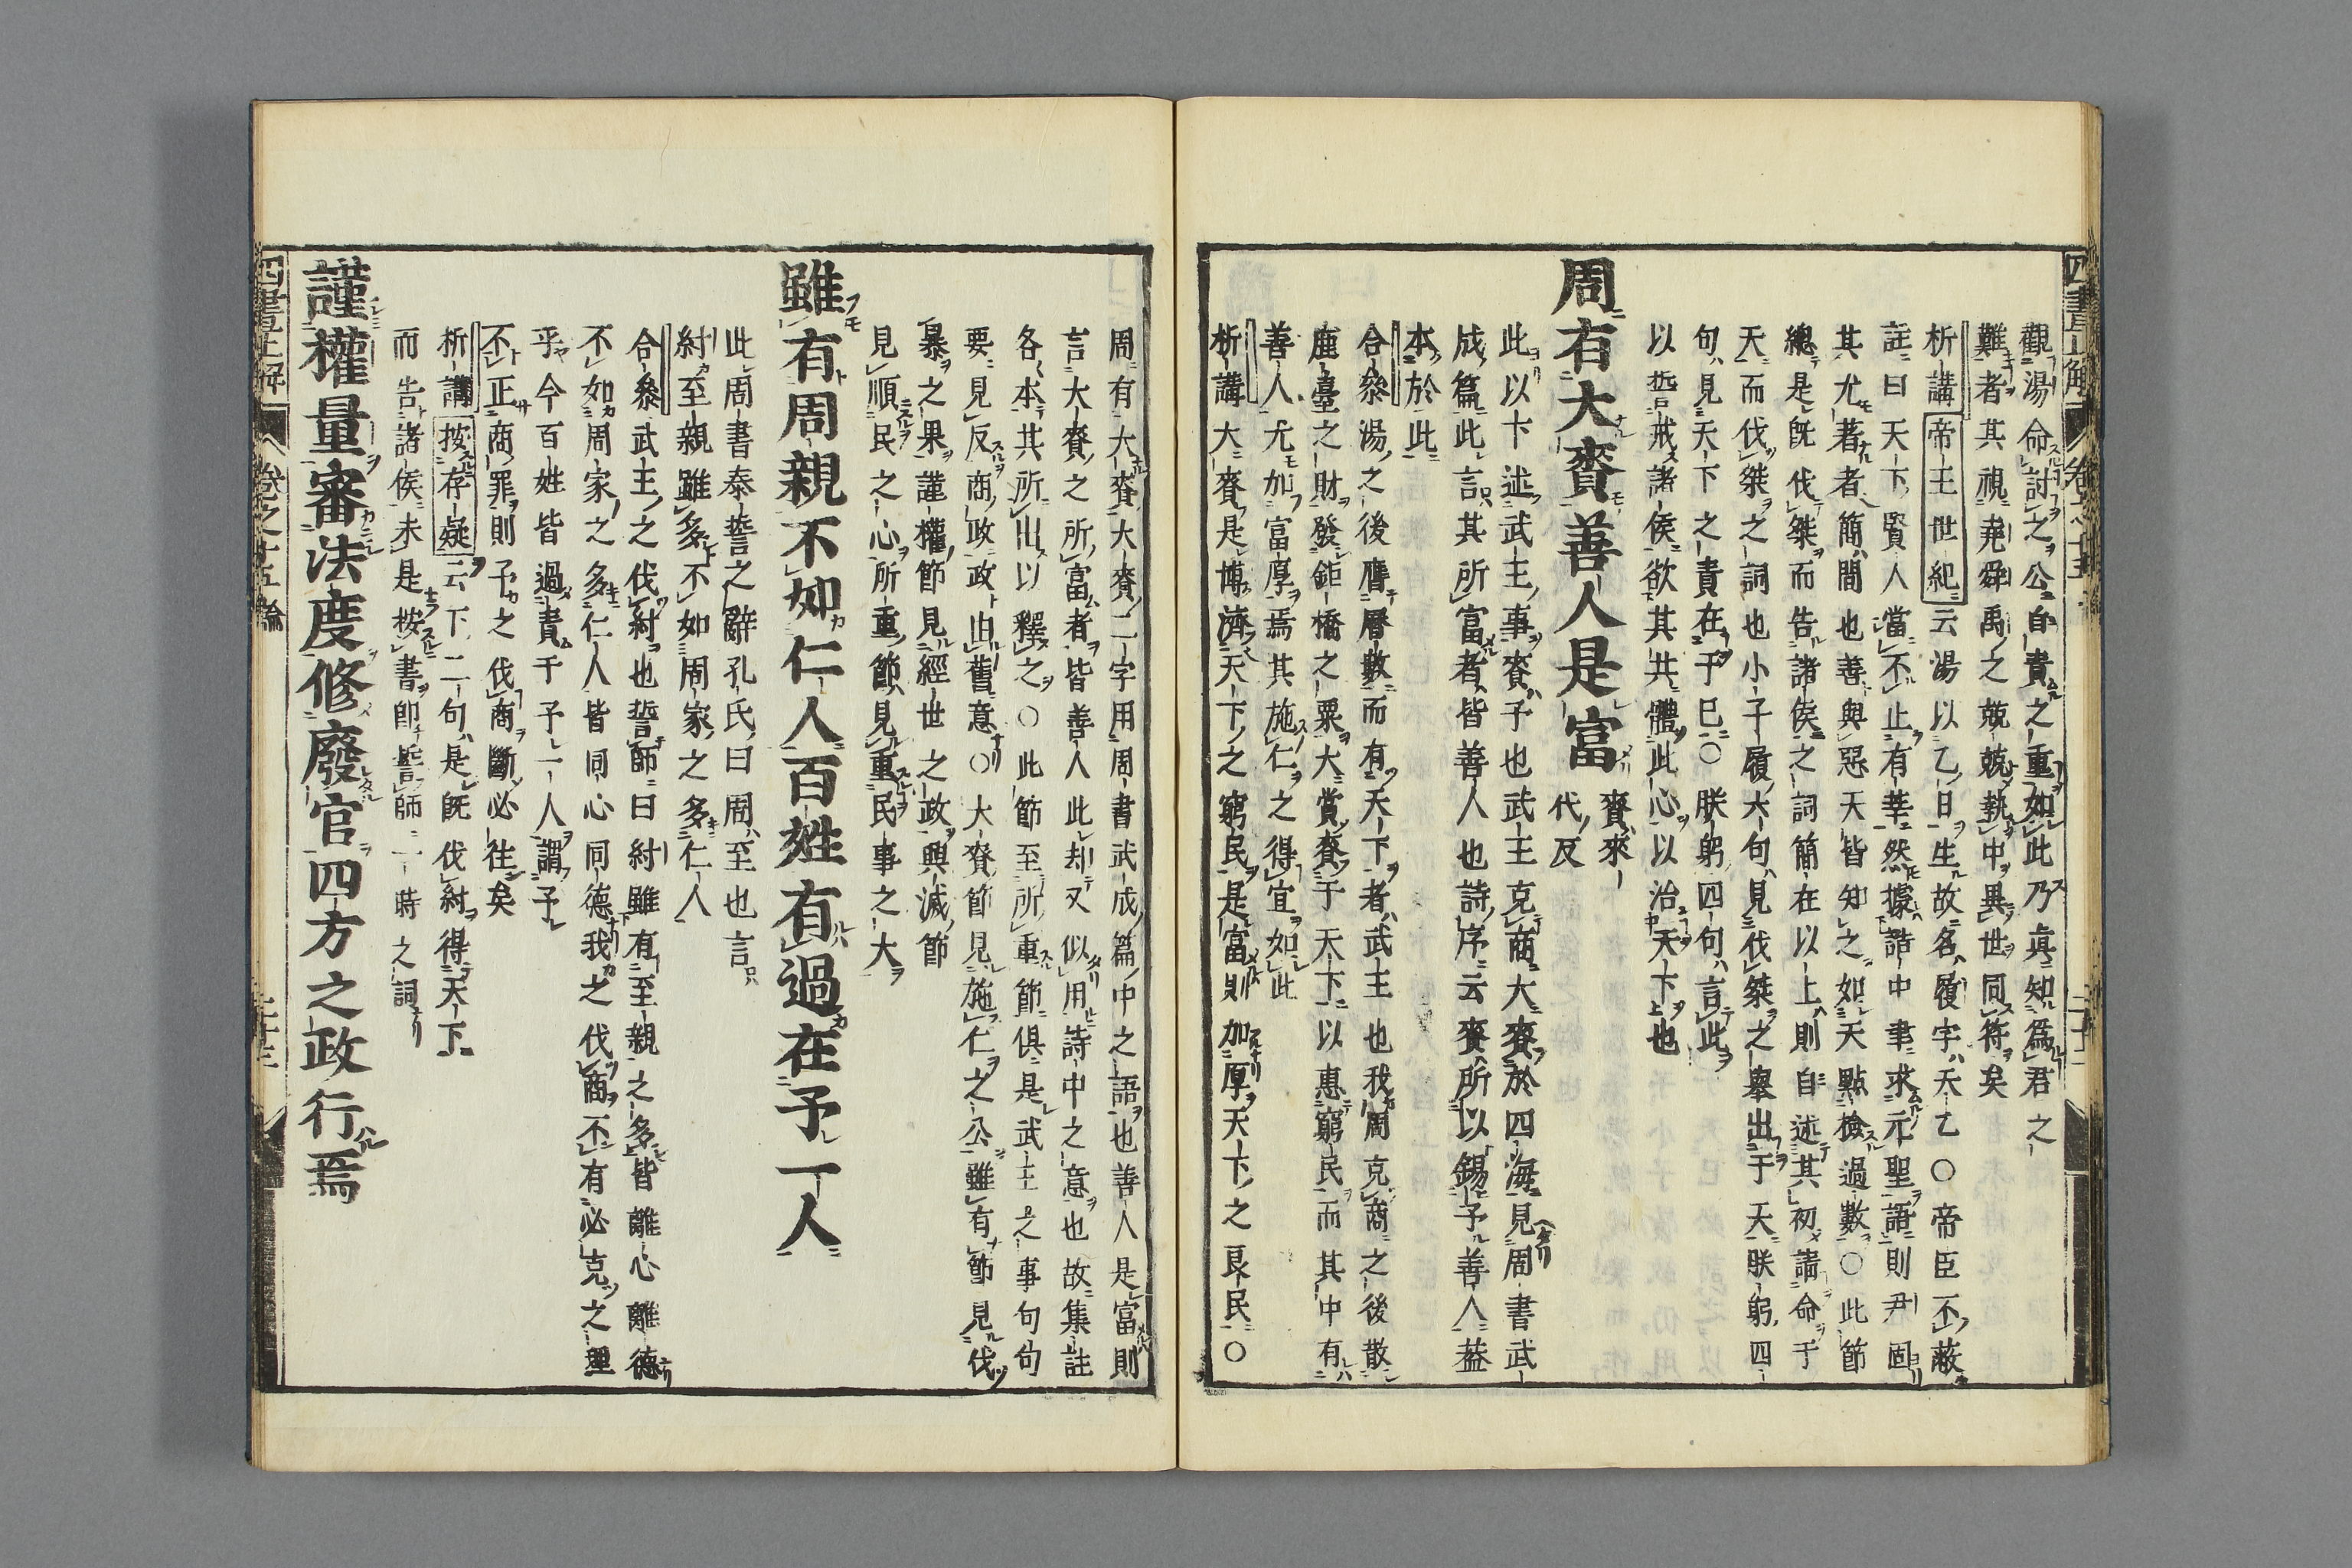 觀湯命討之公自責之重如此乃眞知爲君之
難者其視堯舜禹之兢兢執中異世同符矣
析講帝王世紀云湯以乙日生故名履字天乙○帝臣不蔽
註曰天下賢人當不止有莘然據誥中聿求元聖語則尹固
其尤著者簡閱也善與惡天皆知之如天點檢過數○此節
總是旣伐桀而告諸侯之詞簡在以上則自述其初請命于
天而伐桀之詞也小子履六句見伐桀之擧出于天朕躬四
句見天下之責在于己○朕躬四句言此
以誓戒諸侯欲其共體此心以治天下也
周有大賚善人是富
賚來
代反
此以下述武王事賚予也武王克商大賚於四海見周書武
成篇此言其所富者皆善人也詩序云賚所以錫予善人蓋
本於此
合參湯之後膺曆數而有天下者武王也我周克商之後散
鹿臺之財發鉅橋之粟大賞賚于天下以惠窮民而其中有
善人尤加富厚焉其施仁之得宜如此
析講大賚是博濟天下之窮民是富則加厚天下之良民○
周有大賚大賚二字用周書武成篇中之語也善人是富則
言大賚之所富者皆善人此却又似用詩中之意也故集註
各本其所出以釋之○此節至所重節俱是武王之事句句
要見反商政政由舊意○大賚節見施仁之公雖有節見伐
暴之果謹權節見經世之政興滅節
見順民之心所重節見重民事之大
雖有周親不如仁人百姓有過在予一人
此周書泰誓之辭孔氏曰周至也言
紂至親雖多不如周家之多仁人
合參武王之伐紂也誓師曰紂雖有至親之多皆離心離德
不如周家之多仁人皆同心同德我之伐商不有必克之理
乎今百姓皆過責于予一人謂予
不正商罪則予之伐商斷必往矣
析講按存疑云下二句是旣伐紂得天下
而告諸侯未是按書卽誓師一時之詞
謹權量審法度修廢官四方之政行焉
四書正解 卷之十五 論